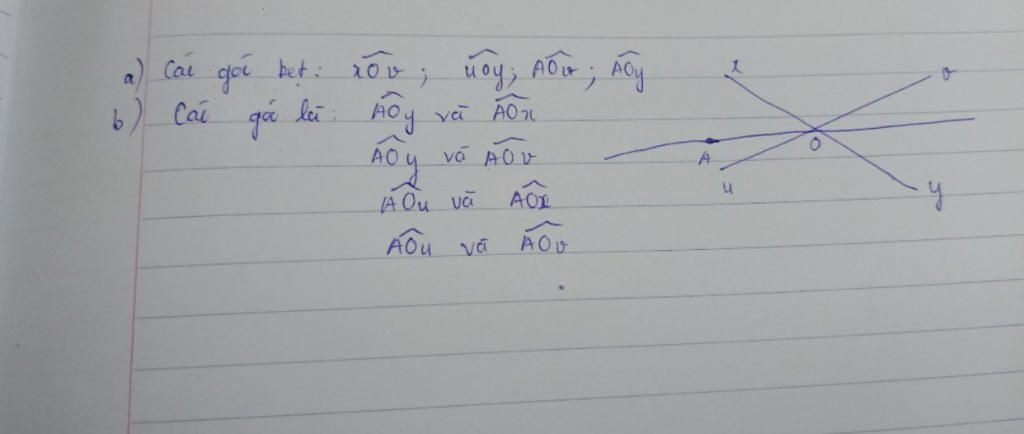 a) Các góc bẹt: xOv; uOy; AOv; AOy
b) Các góc là: AOy và AOx
AOy và AOv
AOu và AOx
AOu và AOv
x
v
O
A
u
y